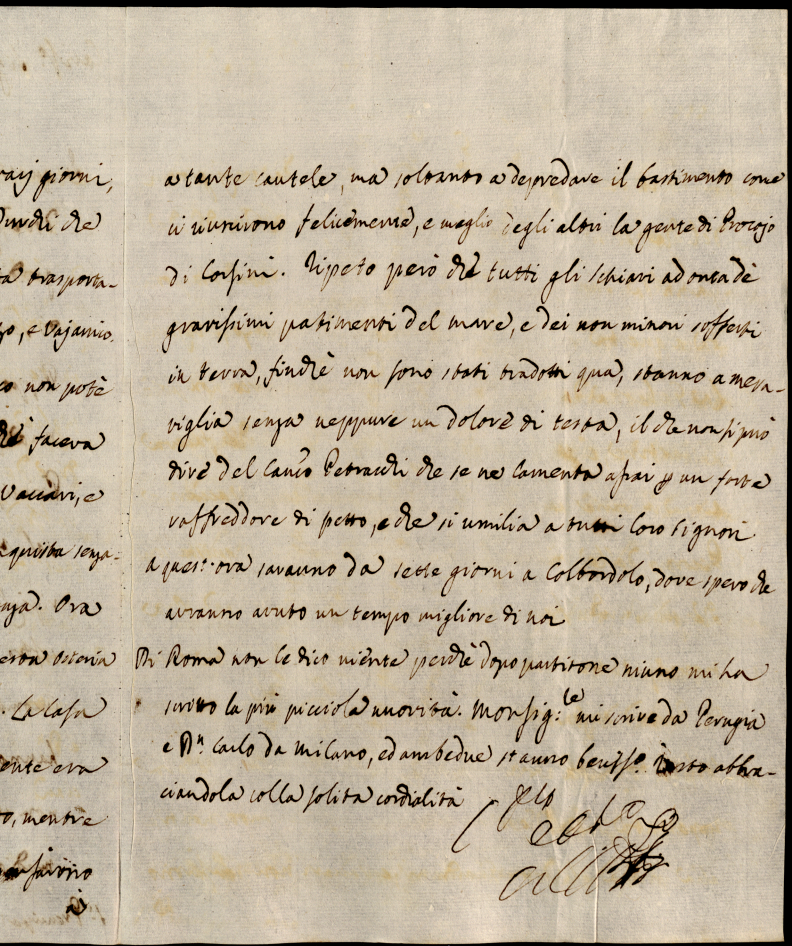 raij giorni,
che
ta trasporta-
zo, e Vajanico.
co non potè
chè faceva
Vaccari, e
aquista senza-
taja. Ora
Osteria
. La Casa
ente era
to, mentre
a tante cautele, ma soltanto a depredare il bastimento come
ci riuscirono felicemente, e meglio degli altri la gente di Procojo
di Corsini. Ripeto però che tutti gli schiavi ad onta dè
gravissimi patimenti del mare, e dei non minori sofferti
in terra, finchè non sono stati tradotti qua, stanno a mera-
viglia senza neppure un dolore di testa, il che non si può
dire del Canco Petracchi che se ne lamenta assai per un forte
raffreddore di petto, e che si umilia a tutti loro Signori.
a quest'ora saranno da sette giorni a Colbordolo, dove spero che
avranno avuto un tempo migliore di noi
Di Roma non le dico niente perchè dopo partitone niuno mi ha
scritto la più picciola novità. Monsig:le mi scrive da Perugia
e Dn Carlo da Milano, ed ambedue stanno beniss.o Resto abbra-
ciandola colla solita cordialità